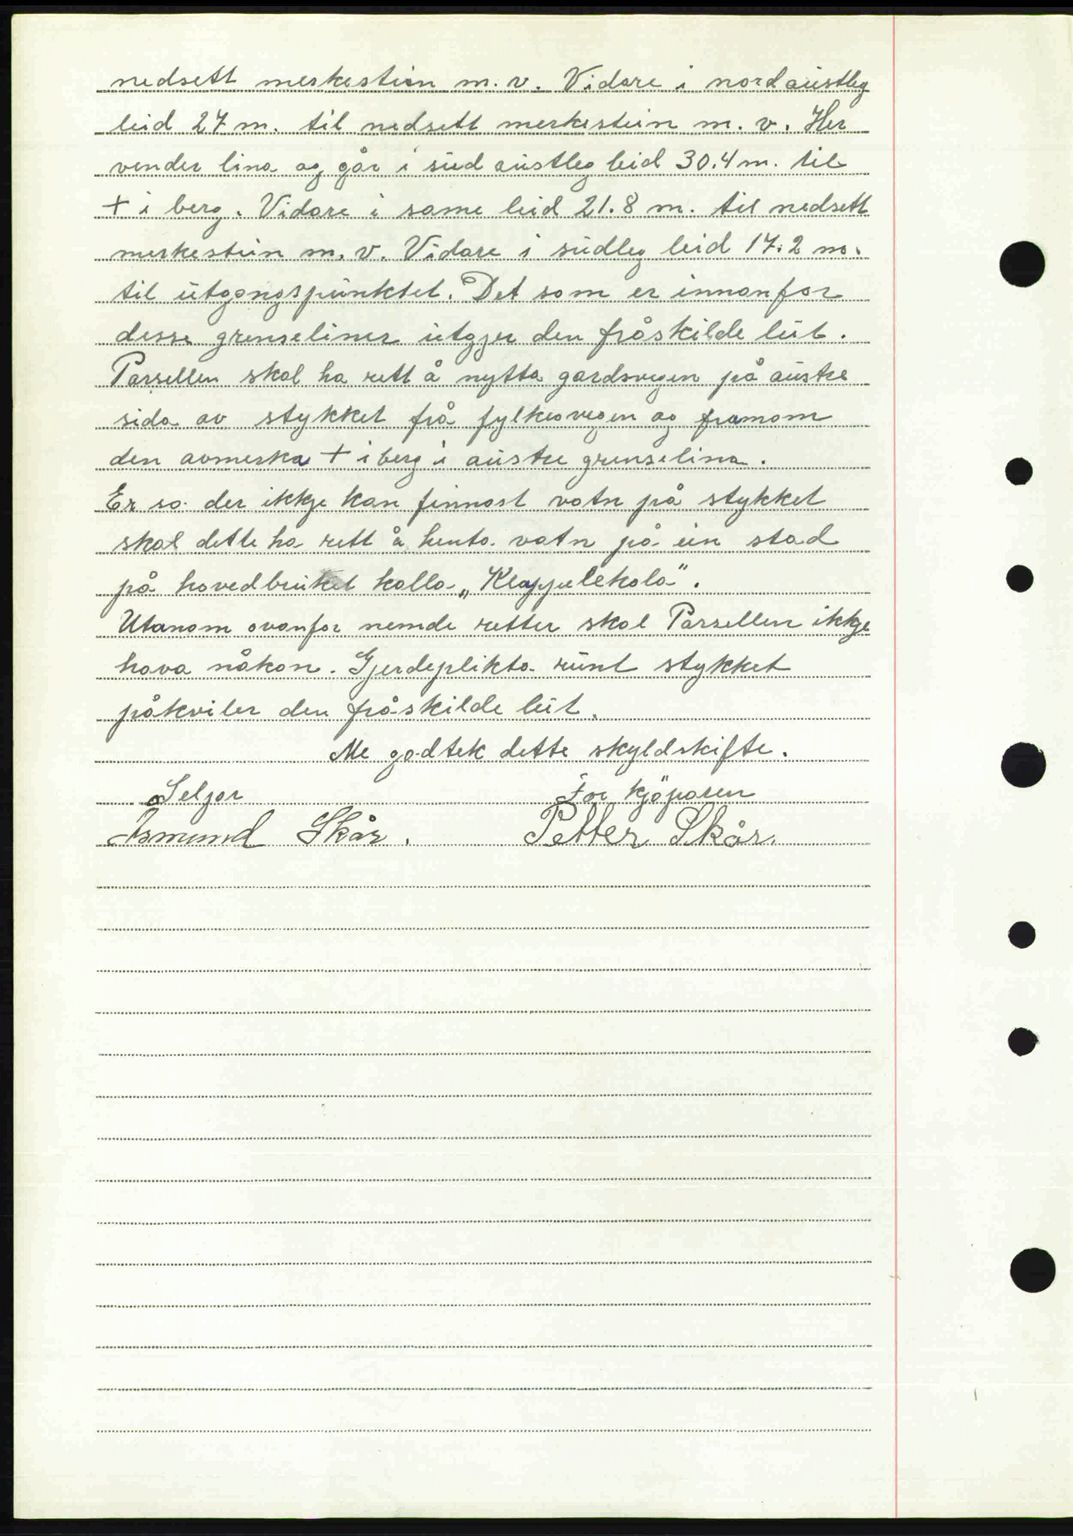 nedsett merkestein m.v. Vidare i nordaustleg
leid 27 m. til nedsett merkestein m. v. Her
vender lina og går i sud austleg leid 30.4 m. til
+ i berg. Vidare i same leid 21.8 m. til nedsett
merkestein m. v. Vidare i sudleg leid 17.2 m.
til utgangspunktet. Det som er innanfor
desse grenseliner utgjer den fråskilde lut.
Parsellen skal ha rett å nytta gardsvegen på austre
sida av stykket frå fylkesvegen og framom
den avmerka + i berg i austre grenselina.
Er so der ikkje kan finnast vatn på stykket
skal dette ha rett å henta vatn på ein stad
på hovedbruket kalla
Utanom ovanfor nemde retter skal Parsellen ikkje
hava nåkon. Gjerdeplikta runt stykket
påkviler den fråskilde lut.
Me godtek dette skyldskifte.
Seljar For kjöparen
Asmund Skår. Petter Skår.